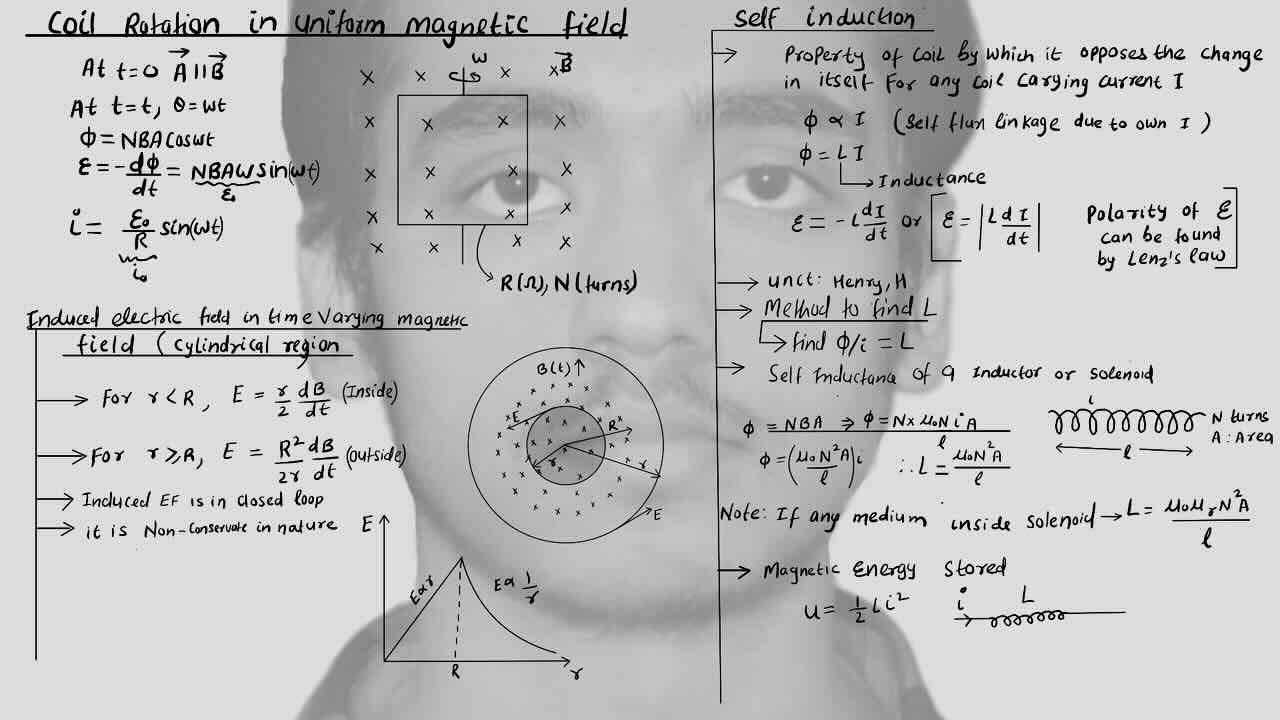 Coil Rotation in uniform magnetic field
At t=0 A⃗ || B⃗
At t=t, θ=ωt
ϕ=NBACosωt
ε=-dϕ/dt = NBAωsin(ωt)
ε₀
i = ε₀/R sin(ωt)
i₀
ω
B⃗
R(Ω), N(turns)
Induced electric field in time Varying magnetic
field (Cylindrical region
For r<R, E = r/2 dB/dt (Inside)
For r⩾R, E = R²/2r dB/dt (outside)
Induced EF is in closed loop
it is Non-Conservate in nature
B(t)↑
E
R
r
r
E
E
E∝r
E∝1/r
R
r
Self induction
Property of coil by which it opposes the change
in itself For any coil Carying current I
ϕ ∝ I (Self flux linkage due to own I)
ϕ = LI
Inductance
ε = -LdI/dt or [ε = |LdI/dt|
Polarity of ε
can be found
by Lenz's law]
unit: Henry, H
Method to find L
find ϕ/i = L
Self Inductance of a Inductor or solenoid
ϕ = NBA ⇒ ϕ = N× μ₀N i A/l
ϕ = (μ₀N²A/l)i ∴ L = μ₀N²A/l
i
N turns
A: Area
l
Note: If any medium inside solenoid → L = μ₀μᵣN²A/l
Magnetic Energy Stored
U = 1/2 Li²
i L